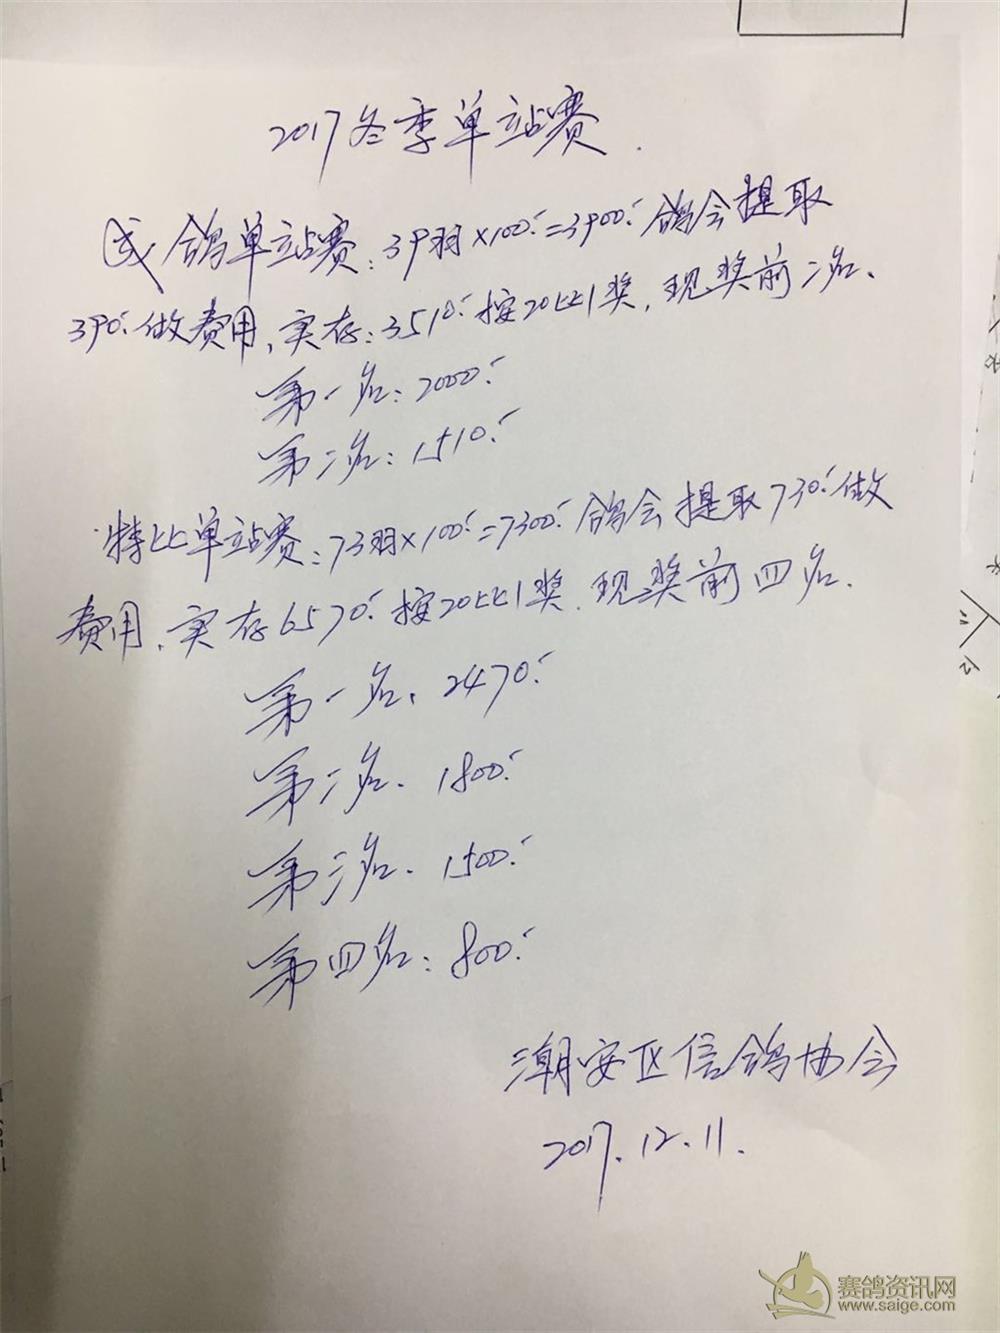 2017冬季单站赛.
成鸽单站赛:39羽×100.=3900.鸽会提取
390.做费用,实存:3510.按20比1奖,现奖前二名、
第一名:2000.
第二名:1510.
特比单站赛:73羽×100.=7300.鸽会提取730.做
费用,实存6570.按20比1奖.现奖前四名.
第一名、2470.
第二名、1800.
第三名、1500.
第四名:800.
潮安区信鸽协会
2017.12.11.
赛鸽资讯网
www.saige.com